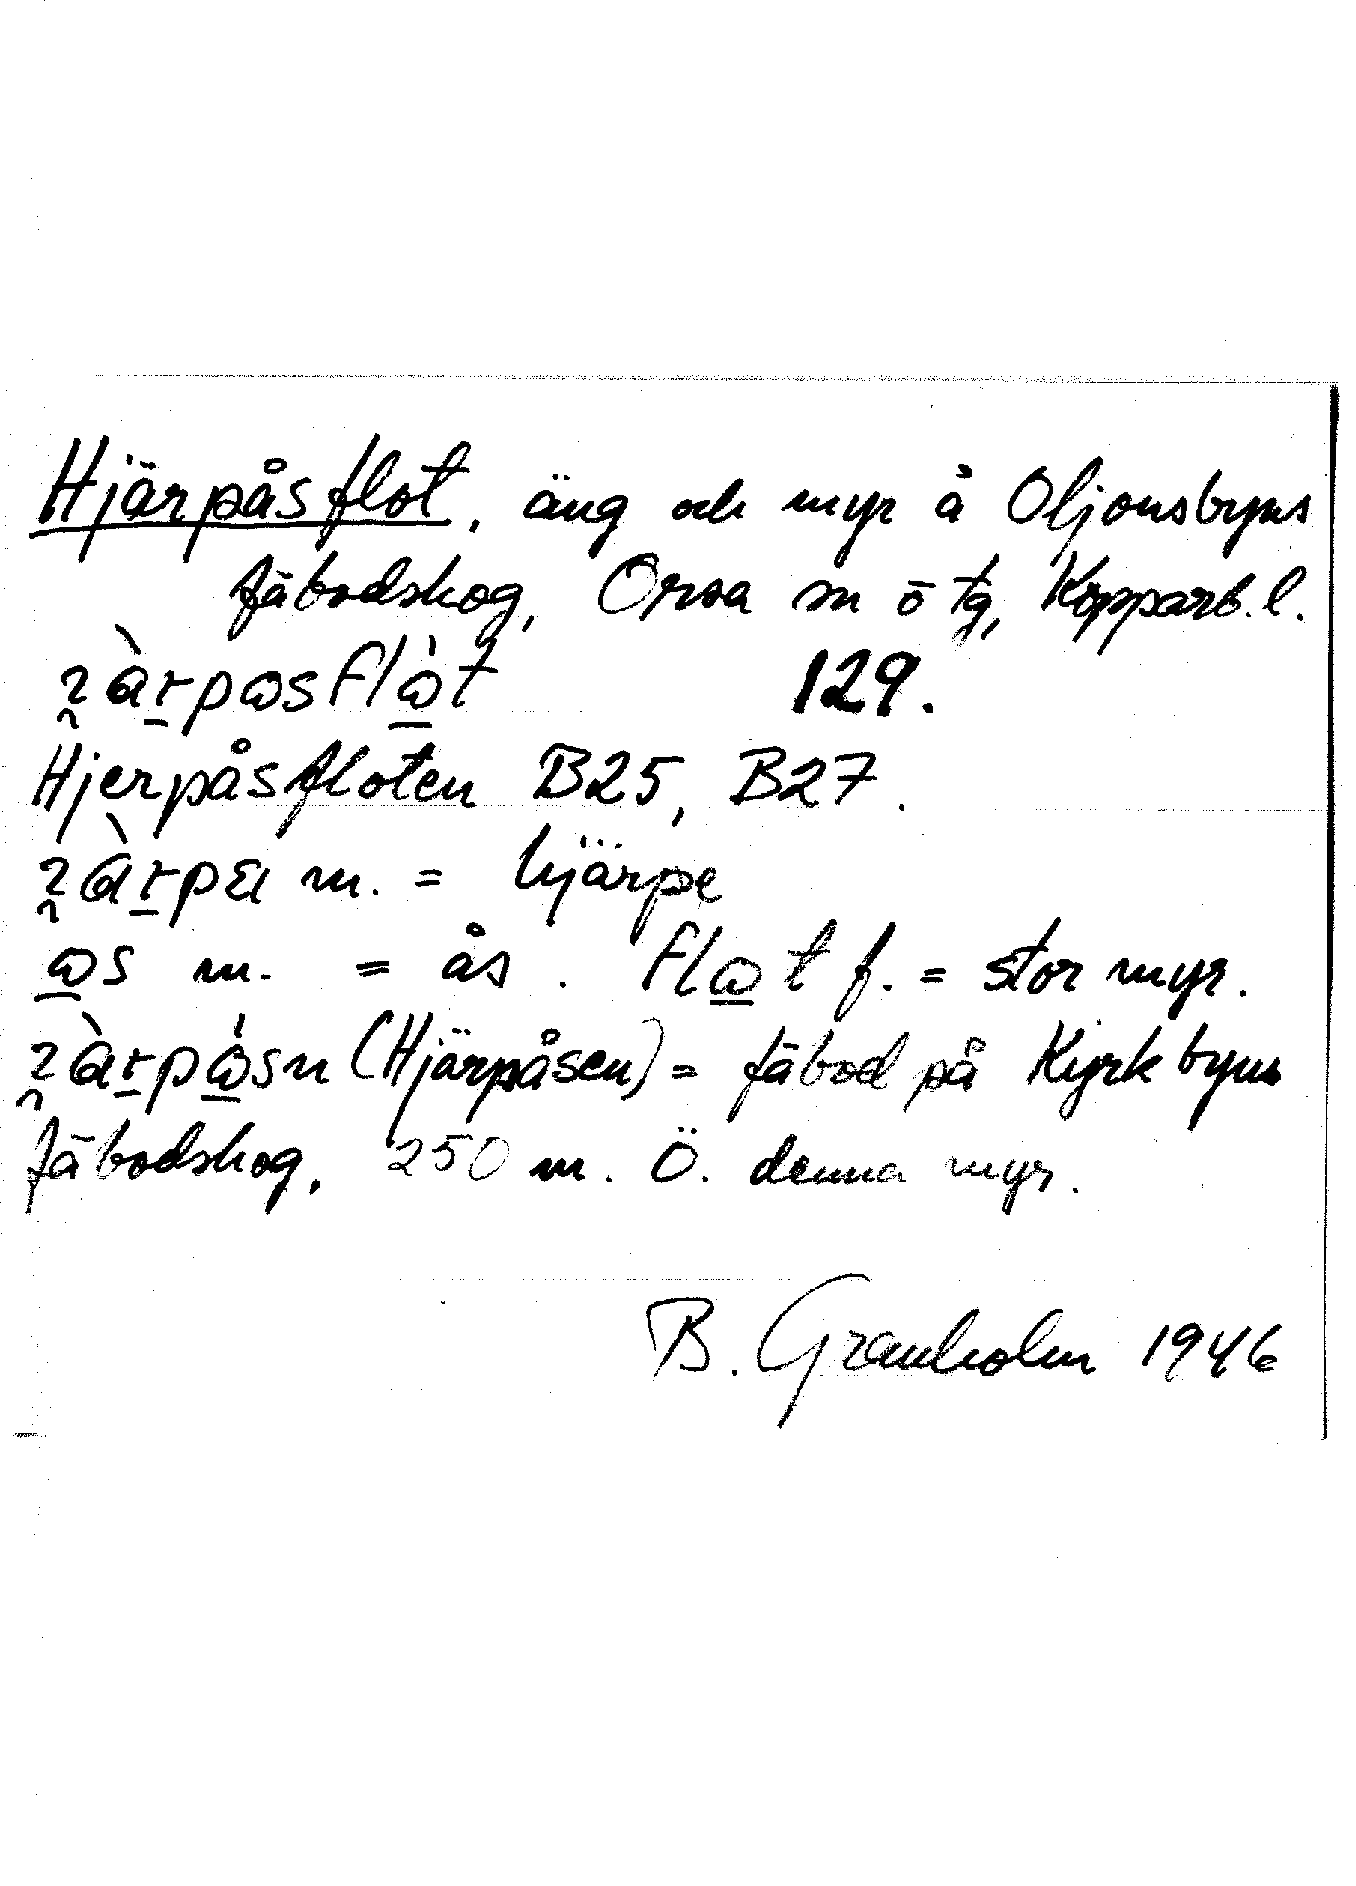 Hjärpåsflot, äng och myr å Oljonsbyns
fäbodskog, Orsa sn ö tg, Kopparb. l.
129.
Hjerpåsfloten B25, B27.
m. = hjärpe
m. = ås. f. = stor myr.
(Hjärpåsen) = fäbod på Kyrkbyns
fäbodskog, 250 m. Ö. denna myr.
B. Granholm 1946